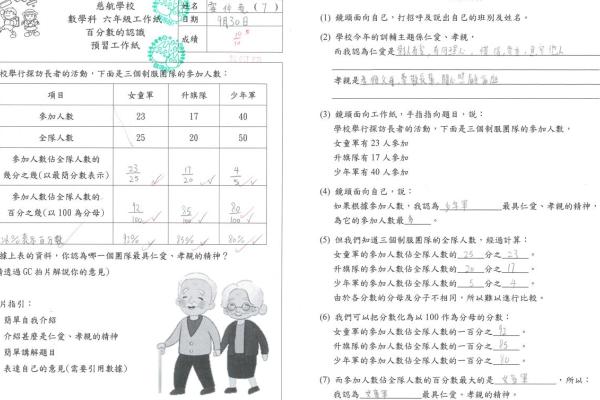 慈航學校
數學科 六年級工作紙
百分數的認識
預習工作紙
姓名 (7)
日期 9月30日
成績
校舉行探訪長者的活動，下面是三個制服團隊的參加人數：
項目 女童軍 升旗隊 少年軍
參加人數 23 17 40
全隊人數 25 20 50
參加人數佔全隊人數的
幾分之幾(以最簡分數表示) 23/25 17/20 4/5
參加人數佔全隊人數的
百分之幾(以100為分母) 92/100 85/100 80/100
%表示百分數 92% 85% 80%
據上表的資料，你認為哪一個團隊最具仁愛、孝親的精神？
請透過GC拍片解說你的意見)
片指引：
簡單自我介紹
介紹甚麼是仁愛、孝親的精神
簡單講解題目
表達自己的意見(需要引用數據)
(1) 鏡頭面向自己，打招呼及說出自己的班別及姓名。
(2) 學校今年的訓輔主題係仁愛、孝親，
而我認為仁愛是
孝親是
(3) 鏡頭面向工作紙，手指指向題目，說：
學校舉行探訪長者的活動，下面是三個制服團隊的參加人數，
女童軍有 23 人參加
升旗隊有 17 人參加
少年軍有 40 人參加
(4) 鏡頭面向自己，說：
如果根據參加人數，我認為 少年軍 最具仁愛、孝親的精神，
為它的參加人數最 多 。
(5) 但我們知道三個制服團隊的全隊人數，經過計算：
女童軍的參加人數佔全隊人數的 25 分之 23 。
升旗隊的參加人數佔全隊人數的 20 分之 17 。
少年軍的參加人數佔全隊人數的 5 分之 4 。
由於各分數的分母及分子不相同，所以難以進行比較。
(6) 我們可以把分數化為以 100 作為分母的分數：
女童軍的參加人數佔全隊人數的一百分之 92 。
升旗隊的參加人數佔全隊人數的一百分之 85 。
少年軍的參加人數佔全隊人數的一百分之 80 。
(7) 而參加人數佔全隊人數的百分數最大的是 女童軍 ，所以：
我認為 女童軍 最具仁愛、孝親的精神。